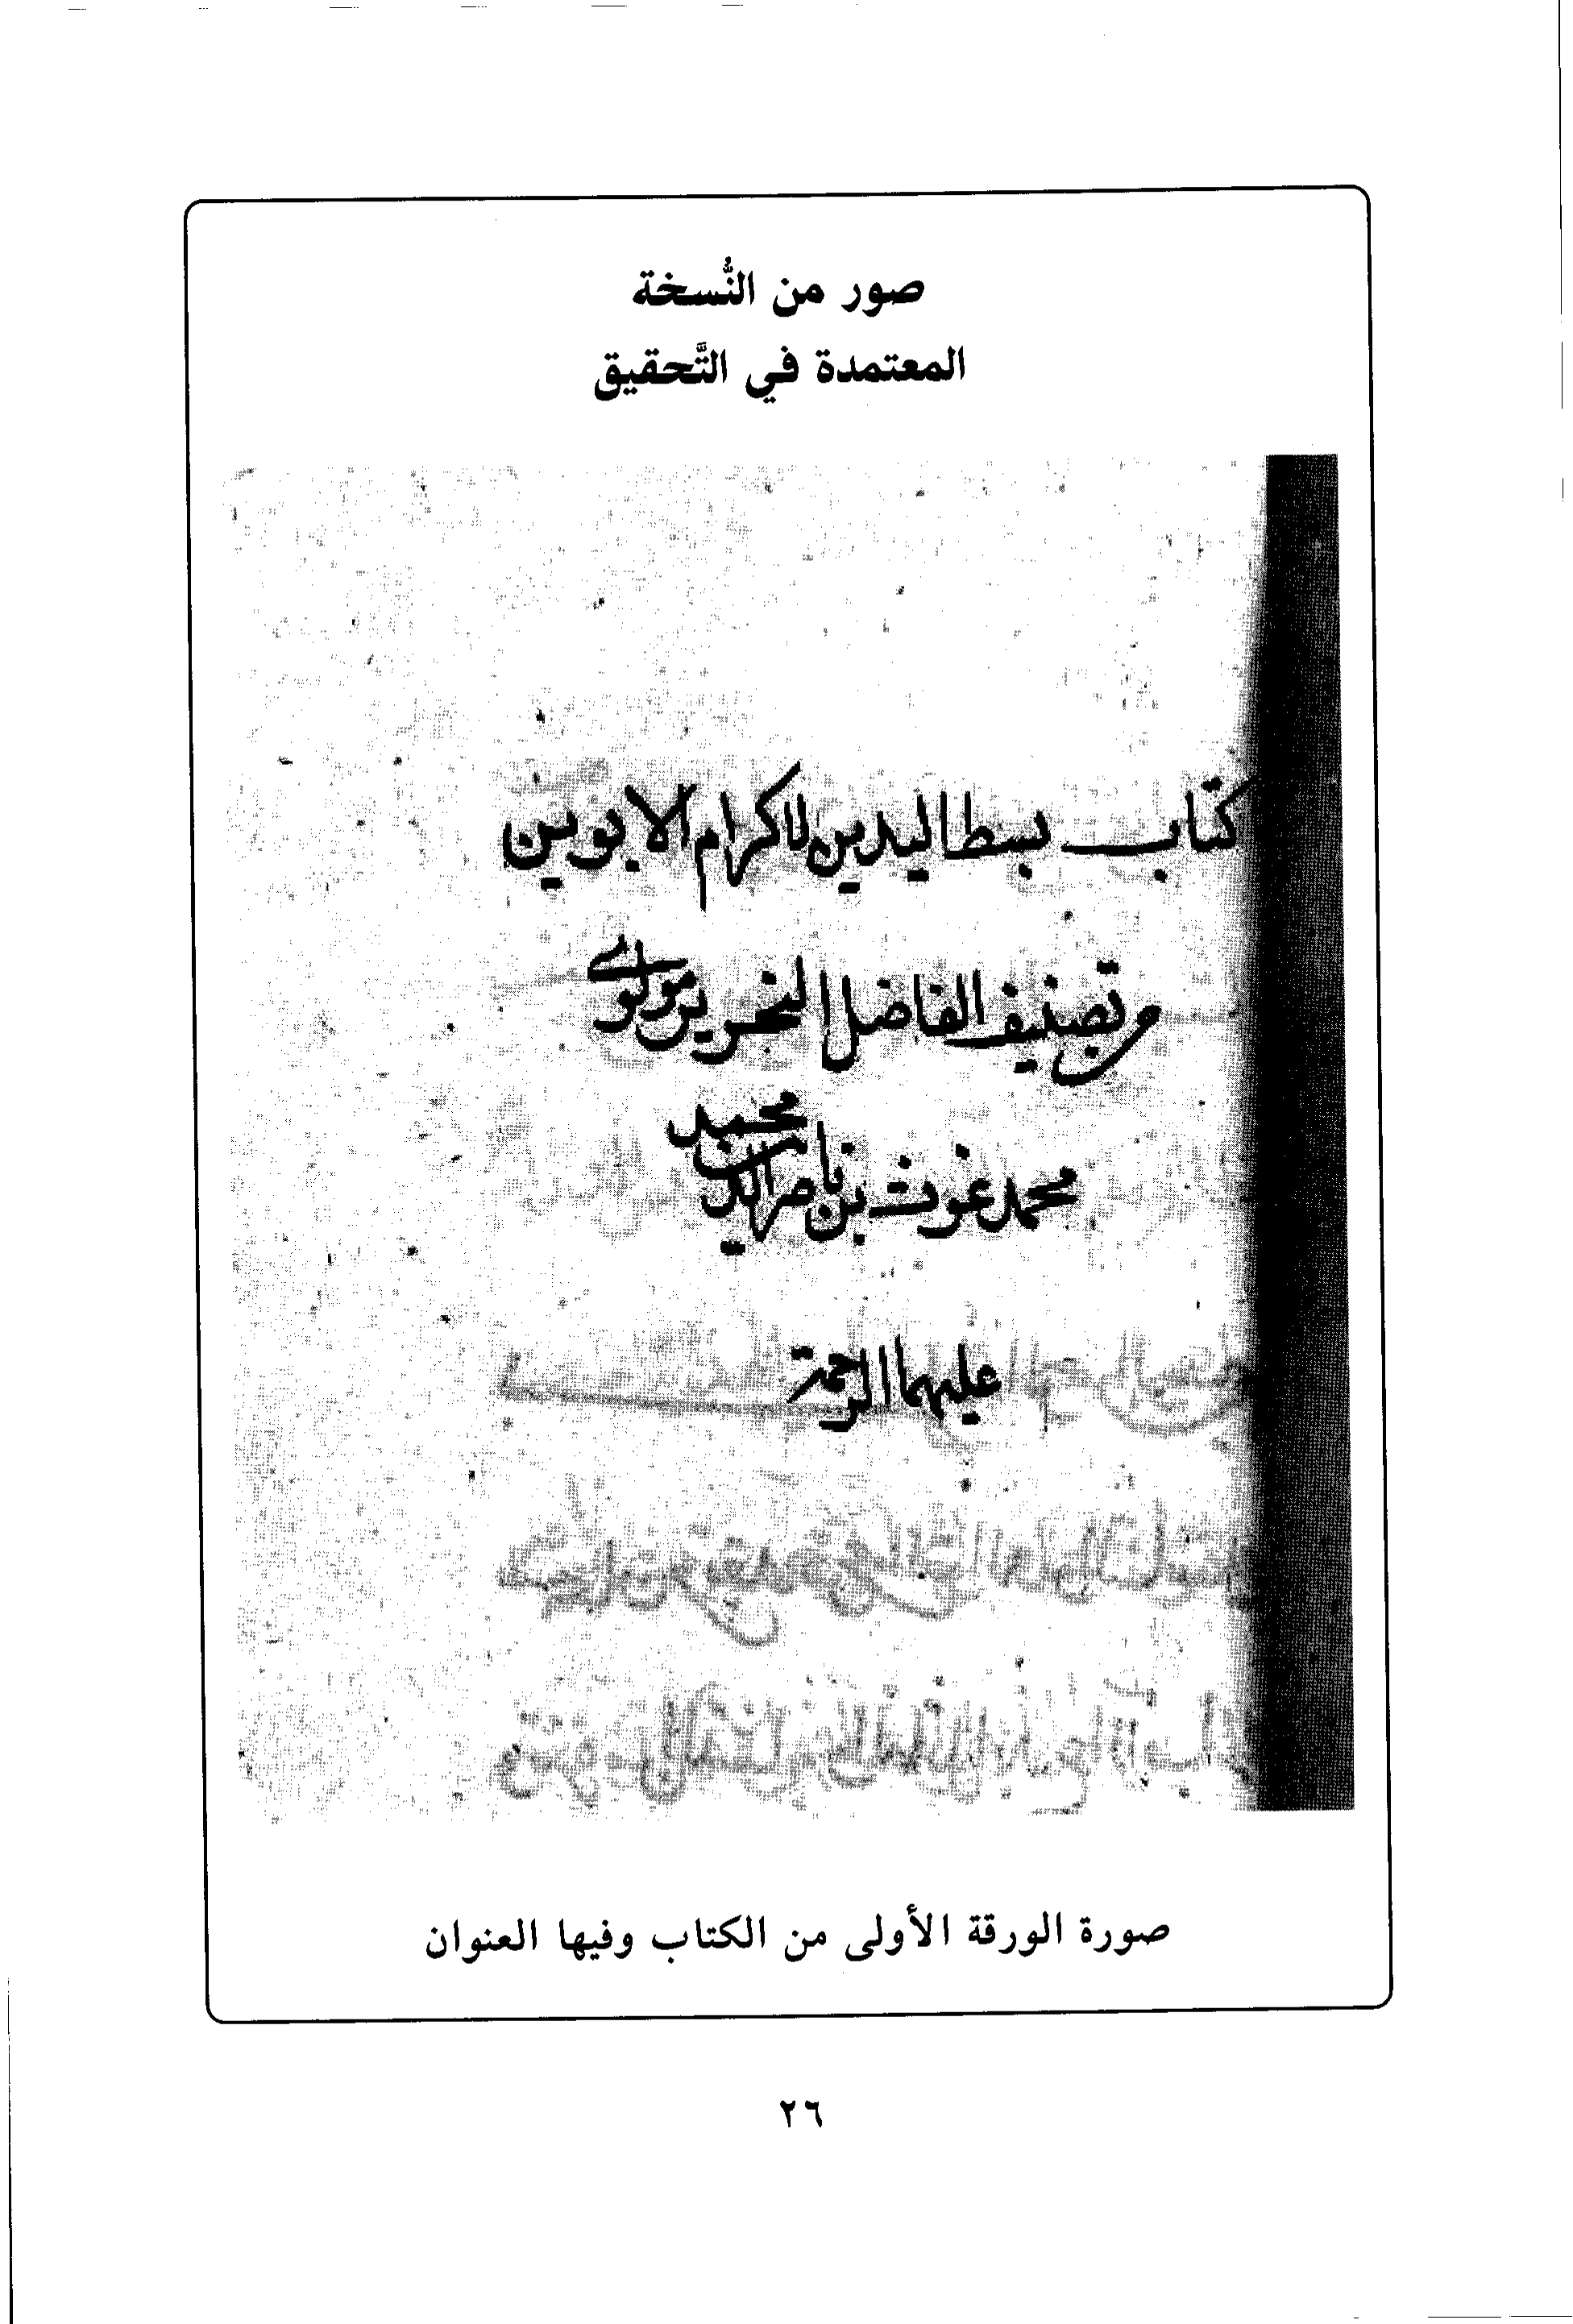 صور من النُّسخة
المعتمدة في التَّحقيق
كتاب بسط اليدين لاكرام الابوين
من تصنيف الفاضل النحرير مولوي
محمد
محمد غوث بن ناصر الدين
عليهما الرحمة
صورة الورقة الأولى من الكتاب وفيها العنوان
٢٦